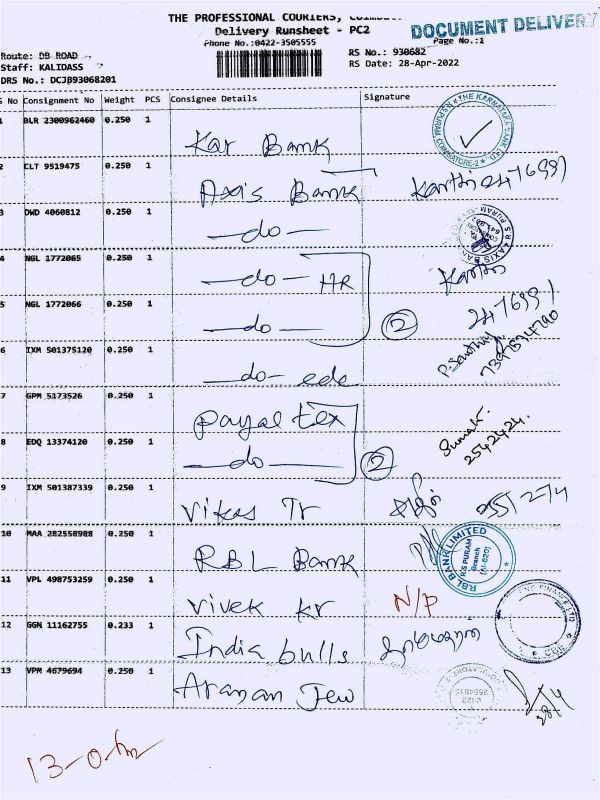 THE PROFESSIONAL COURIERS,
DOCUMENT DELIVERY
Delivery Runsheet - PC2
Page No.:1
Phone No.:0422-3505555
Route: DB ROAD
RS No.: 930682
Staff: KALIDASS
RS Date: 28-Apr-2022
DRS No.: DCJB93068201
S No Consignment No Weight PCS Consignee Details Signature
1 BLR 2300962460 0.250 1 Kar Bank
2 CLT 9519475 0.250 1 Axis Bank Karthi 247699)
3 DWD 4060812 0.250 1 —do—
4 NGL 1772065 0.250 1 —do— HR Karthi
5 NGL 1772066 0.250 1 —do— 2 247699)
6 IXM 501375120 0.250 1 —do— edc
7397574790
7 GPM 5173526 0.250 1 Payal tex
8 EDQ 13374120 0.250 1 —do— 2 Suma K.
2542424.
9 IXM 501387339 0.250 1 Vikas Tr
10 MAA 282558988 0.250 1 RBL Bank
RBL BANK LIMITED
RS PURAM
Branch
11 VPL 498753259 0.250 1 Vivek kr N/P
12 GGN 11162755 0.233 1 India bulls
13 VPM 4679694 0.250 1
28/4